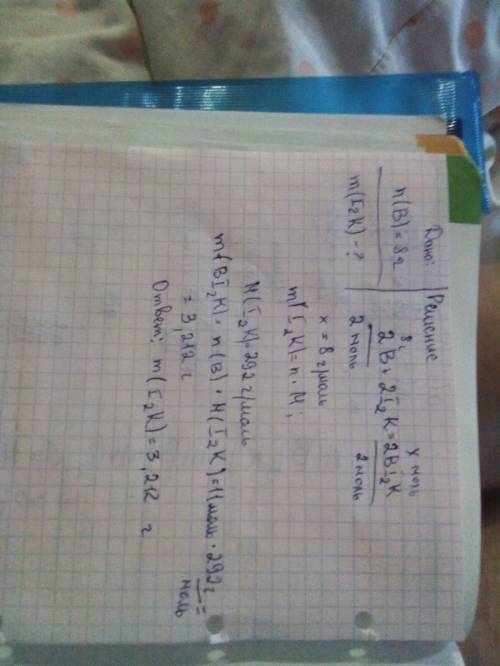 Дано:
n(B) = 8 г
m(I₂K) - ?
Решение
8г x моль
2B + 2I₂K = 2BI₂K
2 моль 2 моль
x = 8 г/моль
m(I₂K) = n · M;
M(I₂K) = 292 г/моль
m(BI₂K) = n(B) · M(I₂K) = 11 моль · 292 г/моль =
= 3,212 г
Ответ: m(I₂K) = 3,212 г